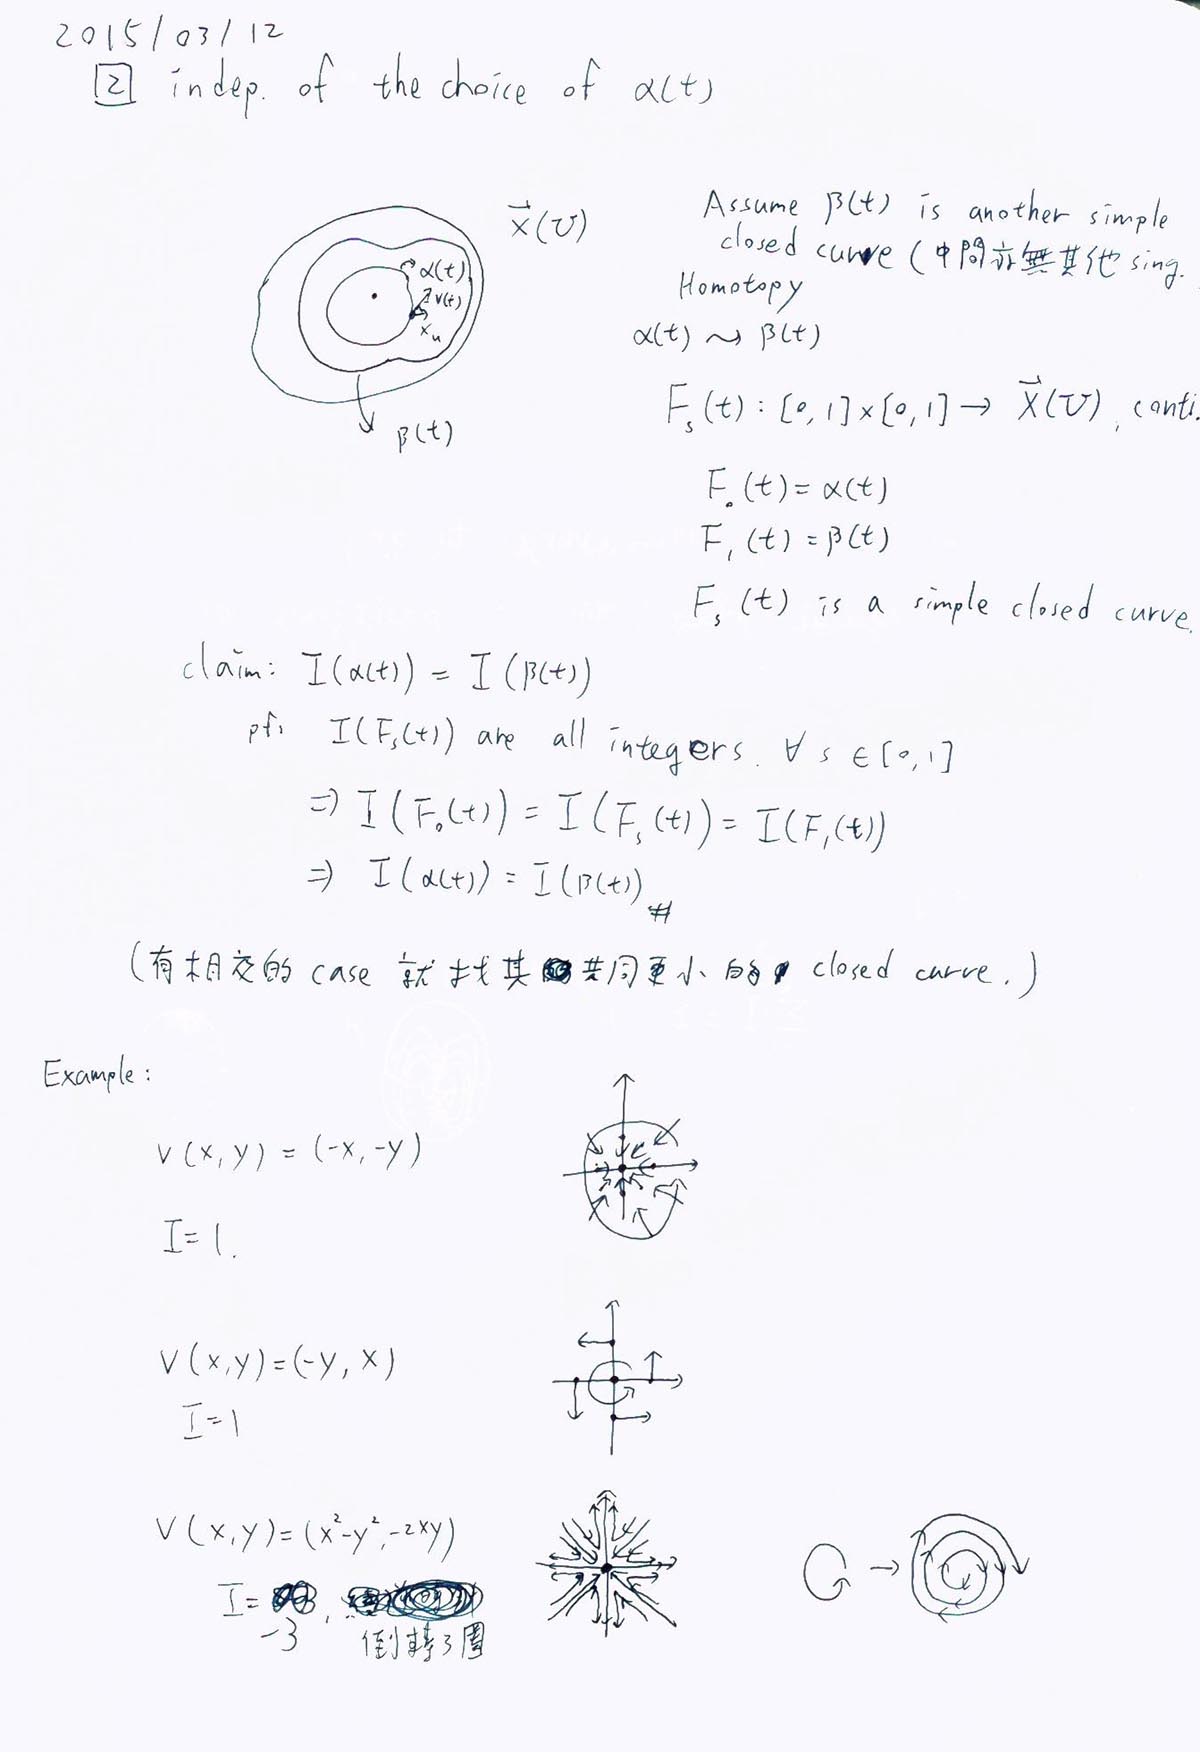 2015/03/12
[2] indep. of the choice of α(t)
α(t)
v(t)
Xu
β(t)
X⃗(U)
Assume β(t) is another simple
closed curve (中間亦無其他 sing.
Homotopy
α(t) ⤳ β(t)
Fₛ(t) : [0,1]×[0,1] → X⃗(U), conti.
F₀(t) = α(t)
F₁(t) = β(t)
Fₛ(t) is a simple closed curve.
claim: I(α(t)) = I(β(t))
pf: I(Fₛ(t)) are all integers. ∀ s ∈ [0,1]
⇒ I(F₀(t)) = I(Fₛ(t)) = I(F₁(t))
⇒ I(α(t)) = I(β(t)) #
(有相交的 case 就找其共同更小的 closed curve.)
Example:
V(x,y) = (-x,-y)
I=1.
V(x,y)=(-y, x)
I=1
V(x,y)=(x²-y²,-2xy)
I= ,
-3 倒轉3圈